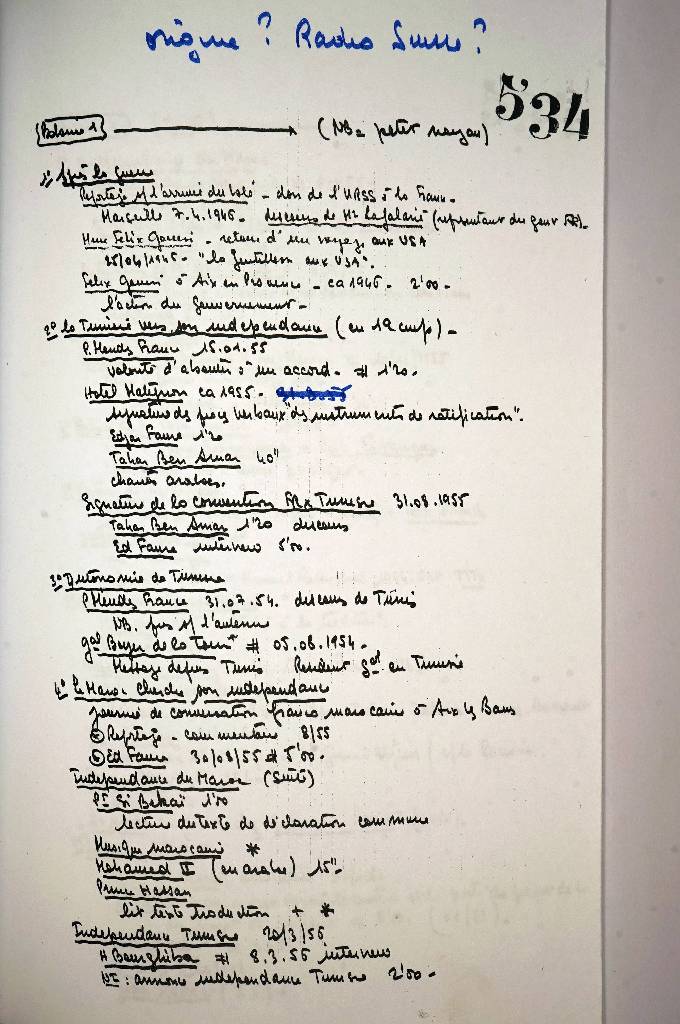 origine ? Radio Suisse ?
534
Bobine 1 (NB = petit nagra)
1° Après la guerre
Reportage s/ l'arrivée du blé - don de l'URSS à la France -
Marseille 7.4.1946 - discours de Mr (représentant du gouv ).
Mme Félix Gouin - retour d'un voyage aux USA
25/04/1946 - "la gentillesse aux USA".
Félix Gouin à Aix en Provence - ca 1946 - 2'00 -
l'action du Gouvernement -
2° la Tunisie vers son indépendance (en 19 cm/s) -
P. Mendès France 15.01.55
volonté d'aboutir à un accord - # 1'20 -
Hotel Matignon ca 1955 -
signature des procès verbaux "des instruments de ratification".
Edgar Faure 1'20
Tahar Ben Amar 40"
chants arabes.
Signature de la convention FR x Tunisie 31.08.1955
Tahar Ben Amar 1'20 discours
Ed Faure interview 5'00.
3° Autonomie de Tunisie
P Mendès France 31.07.54. discours de Tunis
NB. pris s/ l'antenne
gal Boyer de la Tour # 05.08.1954 -
Message depuis Tunis Résident Gal en Tunisie
4° le Maroc cherche son indépendance
journée de conversation franco marocaine à Aix les Bains
Reportage - commentaire 8/55
Ed Faure 30/08/55 # 5'00 -
Indépendance du Maroc (suite)
Pt Si Bekaï 1'00
lecture du texte de déclaration commune
Musique marocaine *
Mohamed V (en arabe) 15"
Prince Hassan
lit texte traduction + *
Indépendance Tunisie 20/3/56
H Bourghiba # 8.3.56 interview
NE : annonce indépendance Tunisie 2'00 -